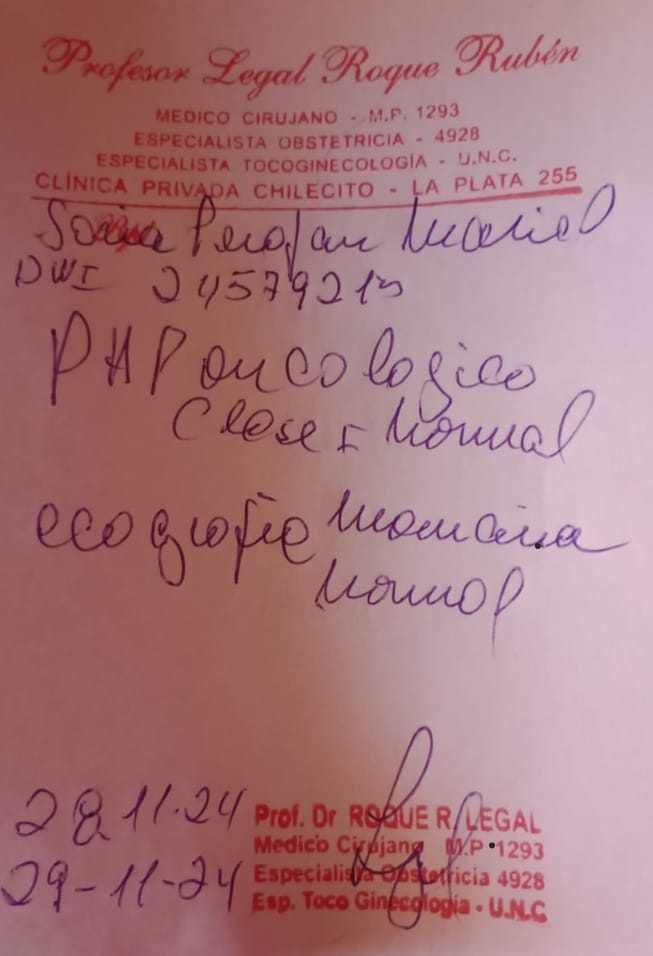 Profesor Legal Roque Rubén
MEDICO CIRUJANO - M.P. 1293
ESPECIALISTA OBSTETRICIA - 4928
ESPECIALISTA TOCOGINECOLOGÍA - U.N.C.
CLÍNICA PRIVADA CHILECITO - LA PLATA 255
Mariel
DNI 24579213
PAP oncologico
Clase I Normal
ecografia Mamaria
Normal
28 11-24
29-11-24
Prof. Dr ROQUE R. LEGAL
Medico Cirujano M.P. 1293
Especialista Obstetricia 4928
Esp. Toco Ginecología - U.N.C